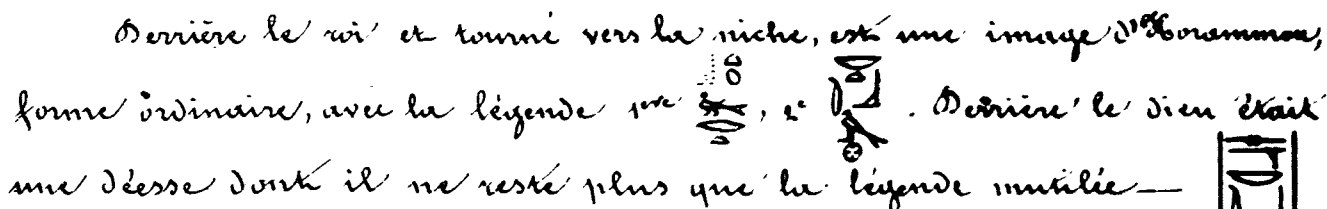 Derrière le roi et tourné vers la niche, est une image d'Horammon,
forme ordinaire, avec la légende 1ère , 2e . Derrière le dieu était
une déesse dont il ne reste plus que la légende mutilée —